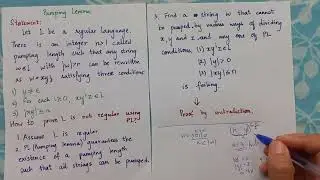 Pumping Lemma
Statement:
Let L be a regular language.
There is an integer n≥1 called
pumping length such that any string
w∈L with |w|≥n can be rewritten
as w=xyz, satisfying three conditions
1) y≠ε
2) For each i≥0, xyⁱz∈L
3) |xy|≤n
How to prove L is not regular using
PL?
1. Assume L is regular.
2. PL (Pumping lemma) guarantees the
existence of a pumping length
such that all strings can be pumped.
3. Find a string w that cannot
be pumped, by various ways of dividing
x, y and z and any one of PL
conditions,
(1) xyⁱz∈L
(2) |y|>0
(3) |xy|≤n
is failing.
Proof by contradiction.